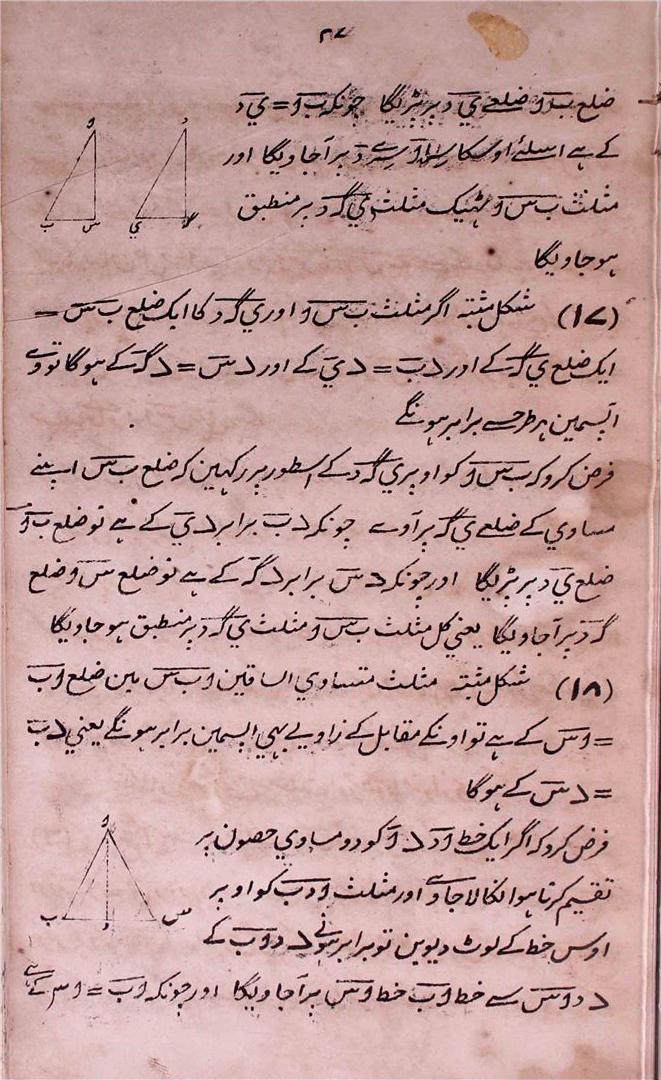 ٢٧
ضلع ب و ضلع ي د پر پڑیگا چونکہ ب و = ي د
کے ہے اسلئے اوسکا سرا و سرے د پر آجاویگا اور
مثلث ب س و ٹہیک مثلث ي گ د پر منطبق
ہوجاویگا
و د
ب س ي گ
(١٧) شکل مثبتہ اگر مثلث ب س و اور ي گ د کا ایک ضلع ب س =
ایک ضلع ي گ کے اور د ب = د ي کے اور د س = د گ کے ہوگا تو وے
اپسمین ہر طرحسے برابر ہونگے
فرض کرو کہ ب س و کو اوپر ي گ د کے اسطور پر رکہین کہ ضلع ب س اپنے
مساوي کے ضلع ي گ پر آوے چونکہ د ب برابر د ي کے ہے تو ضلع ب و
ضلع ي د پر پڑیگا اور چونکہ د س برابر د گ کے ہے تو ضلع س و ضلع
گ د پر آجاویگا یعنی کل مثلث ب س و مثلث ي گ د پر منطبق ہوجاویگا
(١٨) شکل مثبتہ مثلث متساوي الساقین و ب س مین ضلع و ب
= و س کے ہے تو اونکے مقابل کے زاویے بہي اپسمین برابر ہونگے یعني د ب
= د س کے ہوگا
فرض کرو کہ اگر ایک خط و د د و کو دو مساوي حصون پر
تقسیم کرتا ہوا نکالا جاوے اور مثلث و د ب کو اوپر
اوس خط کے لوٹ دیوین تو برابر ہونے د د و ب کے
و
ب د س
د د و س سے خط و ب خط و س پر آجاویگا اور چونکہ و ب = و س کے ہے